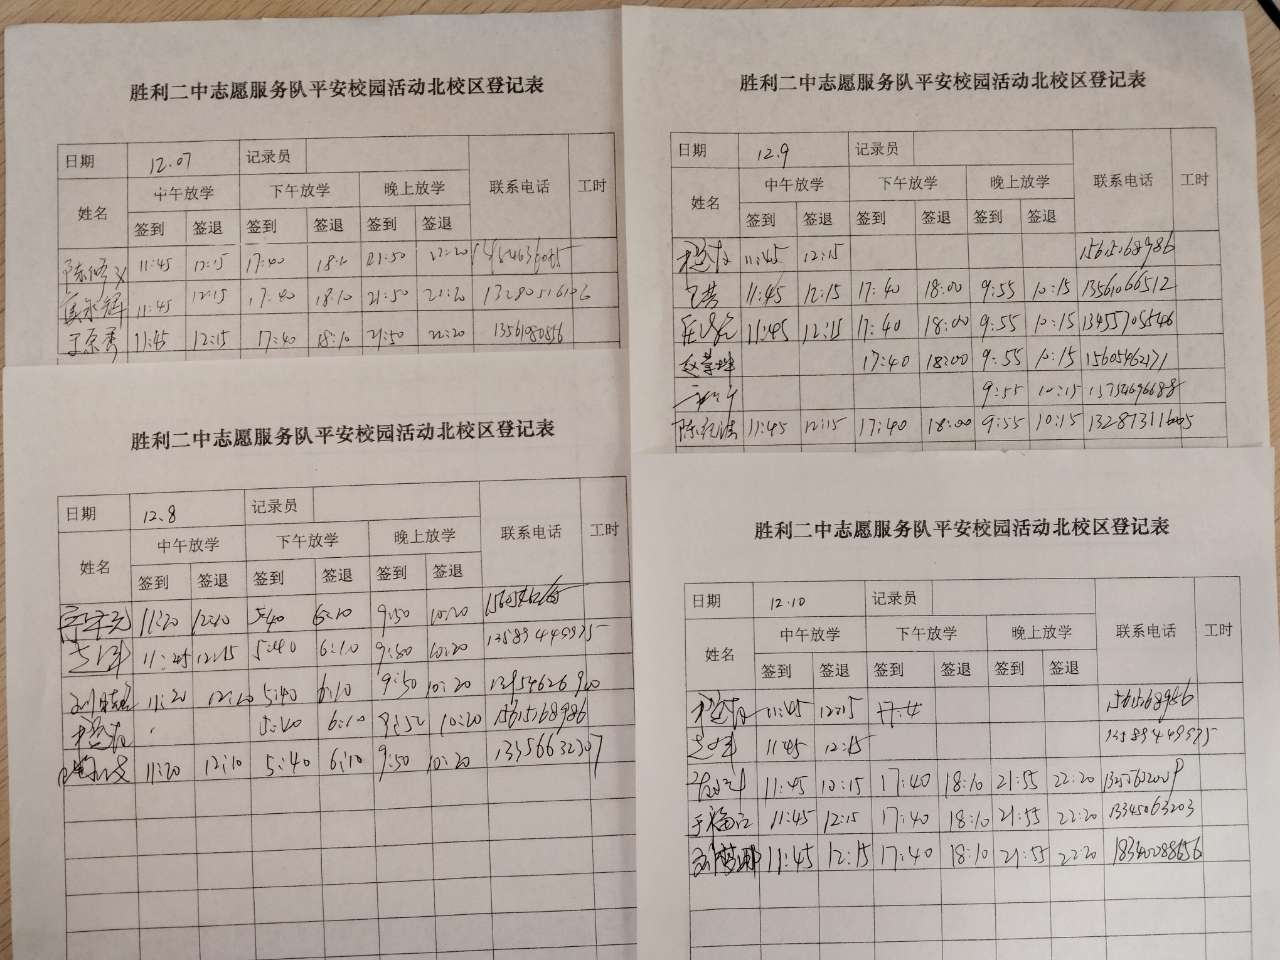 胜利二中志愿服务队平安校园活动北校区登记表
日期 12.07 记录员
姓名 中午放学 下午放学 晚上放学 联系电话 工时
签到 签退 签到 签退 签到 签退
11:45 12:15 17:40 21:50 22:20
11:45 12:15 17:40 18:10 21:50 21:20
于京秀 11:45 12:15 17:40 18:10 21:50 22:20 13561980856
胜利二中志愿服务队平安校园活动北校区登记表
日期 12.9 记录员
姓名 中午放学 下午放学 晚上放学 联系电话 工时
签到 签退 签到 签退 签到 签退
11:45 12:15 15615168986
11:45 12:15 17:40 18:00 9:55 10:15 13561066512
11:45 12:15 17:40 18:00 9:55 10:15 13455705546
17:40 18:00 9:55 10:15 15605462171
9:55 10:15 13754696688
11:45 12:15 17:40 18:00 9:55 10:15
胜利二中志愿服务队平安校园活动北校区登记表
日期 12.8 记录员
姓名 中午放学 下午放学 晚上放学 联系电话 工时
签到 签退 签到 签退 签到 签退
11:20 12:10 5:40 6:10 9:50 10:20
11:45 12:15 5:40 6:10 9:50 10:20 13589449975
11:20 12:10 5:40 6:10 9:50 10:20
5:40 6:10 9:50 10:20 15615168986
11:20 12:10 5:40 6:10 9:50 10:20 13356632307
胜利二中志愿服务队平安校园活动北校区登记表
日期 12.10 记录员
姓名 中午放学 下午放学 晚上放学 联系电话 工时
签到 签退 签到 签退 签到 签退
11:45 12:15 15615168986
11:45 12:15 13589449975
11:45 12:15 17:40 18:10 21:55 22:20
11:45 12:15 17:40 18:10 21:55 22:20 13345063203
11:45 12:15 17:40 18:10 21:55 22:20 18340088656